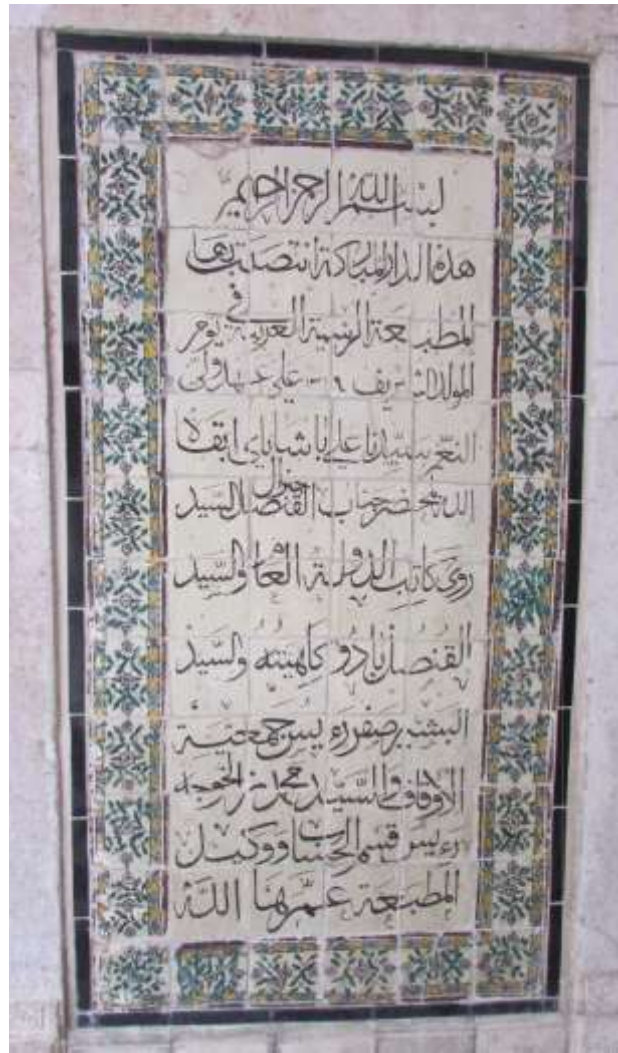 بسم الله الرحمن الرحيم
هذه الدار المباركة انتصبت بها
المطبعة الرسمية العربية في يوم
المولد الشريف على عهد ولي
النعم سيدنا علي باشا باي ابقاه
الله بمحضر جناب القنصل جنرال السيد
روى كاتب الدولة العام والسيد
القنصل بادو كاهيته والسيد
البشير صفر رءيس جمعية
الاوقاف والسيد محمد بن الخوجه
رءيس قسم الحساب ووكيل
المطبعة عمرها الله